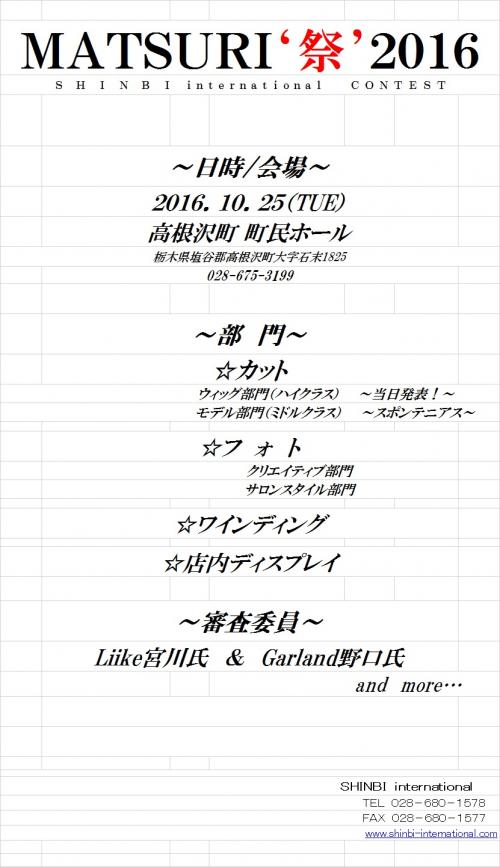 MATSURI‘祭’2016
SHINBI international CONTEST
～日時/会場～
2016. 10. 25(TUE)
高根沢町 町民ホール
栃木県塩谷郡高根沢町大字石末1825
028-675-3199
～部 門～
☆カット
ウィッグ部門(ハイクラス) ～当日発表！～
モデル部門(ミドルクラス) ～スポンテニアス～
☆フォト
クリエイティブ部門
サロンスタイル部門
☆ワインディング
☆店内ディスプレイ
～審査委員～
Liike宮川氏 ＆ Garland野口氏
and more…
SHINBI international
TEL 028-680-1578
FAX 028-680-1577
www.shinbi-international.com